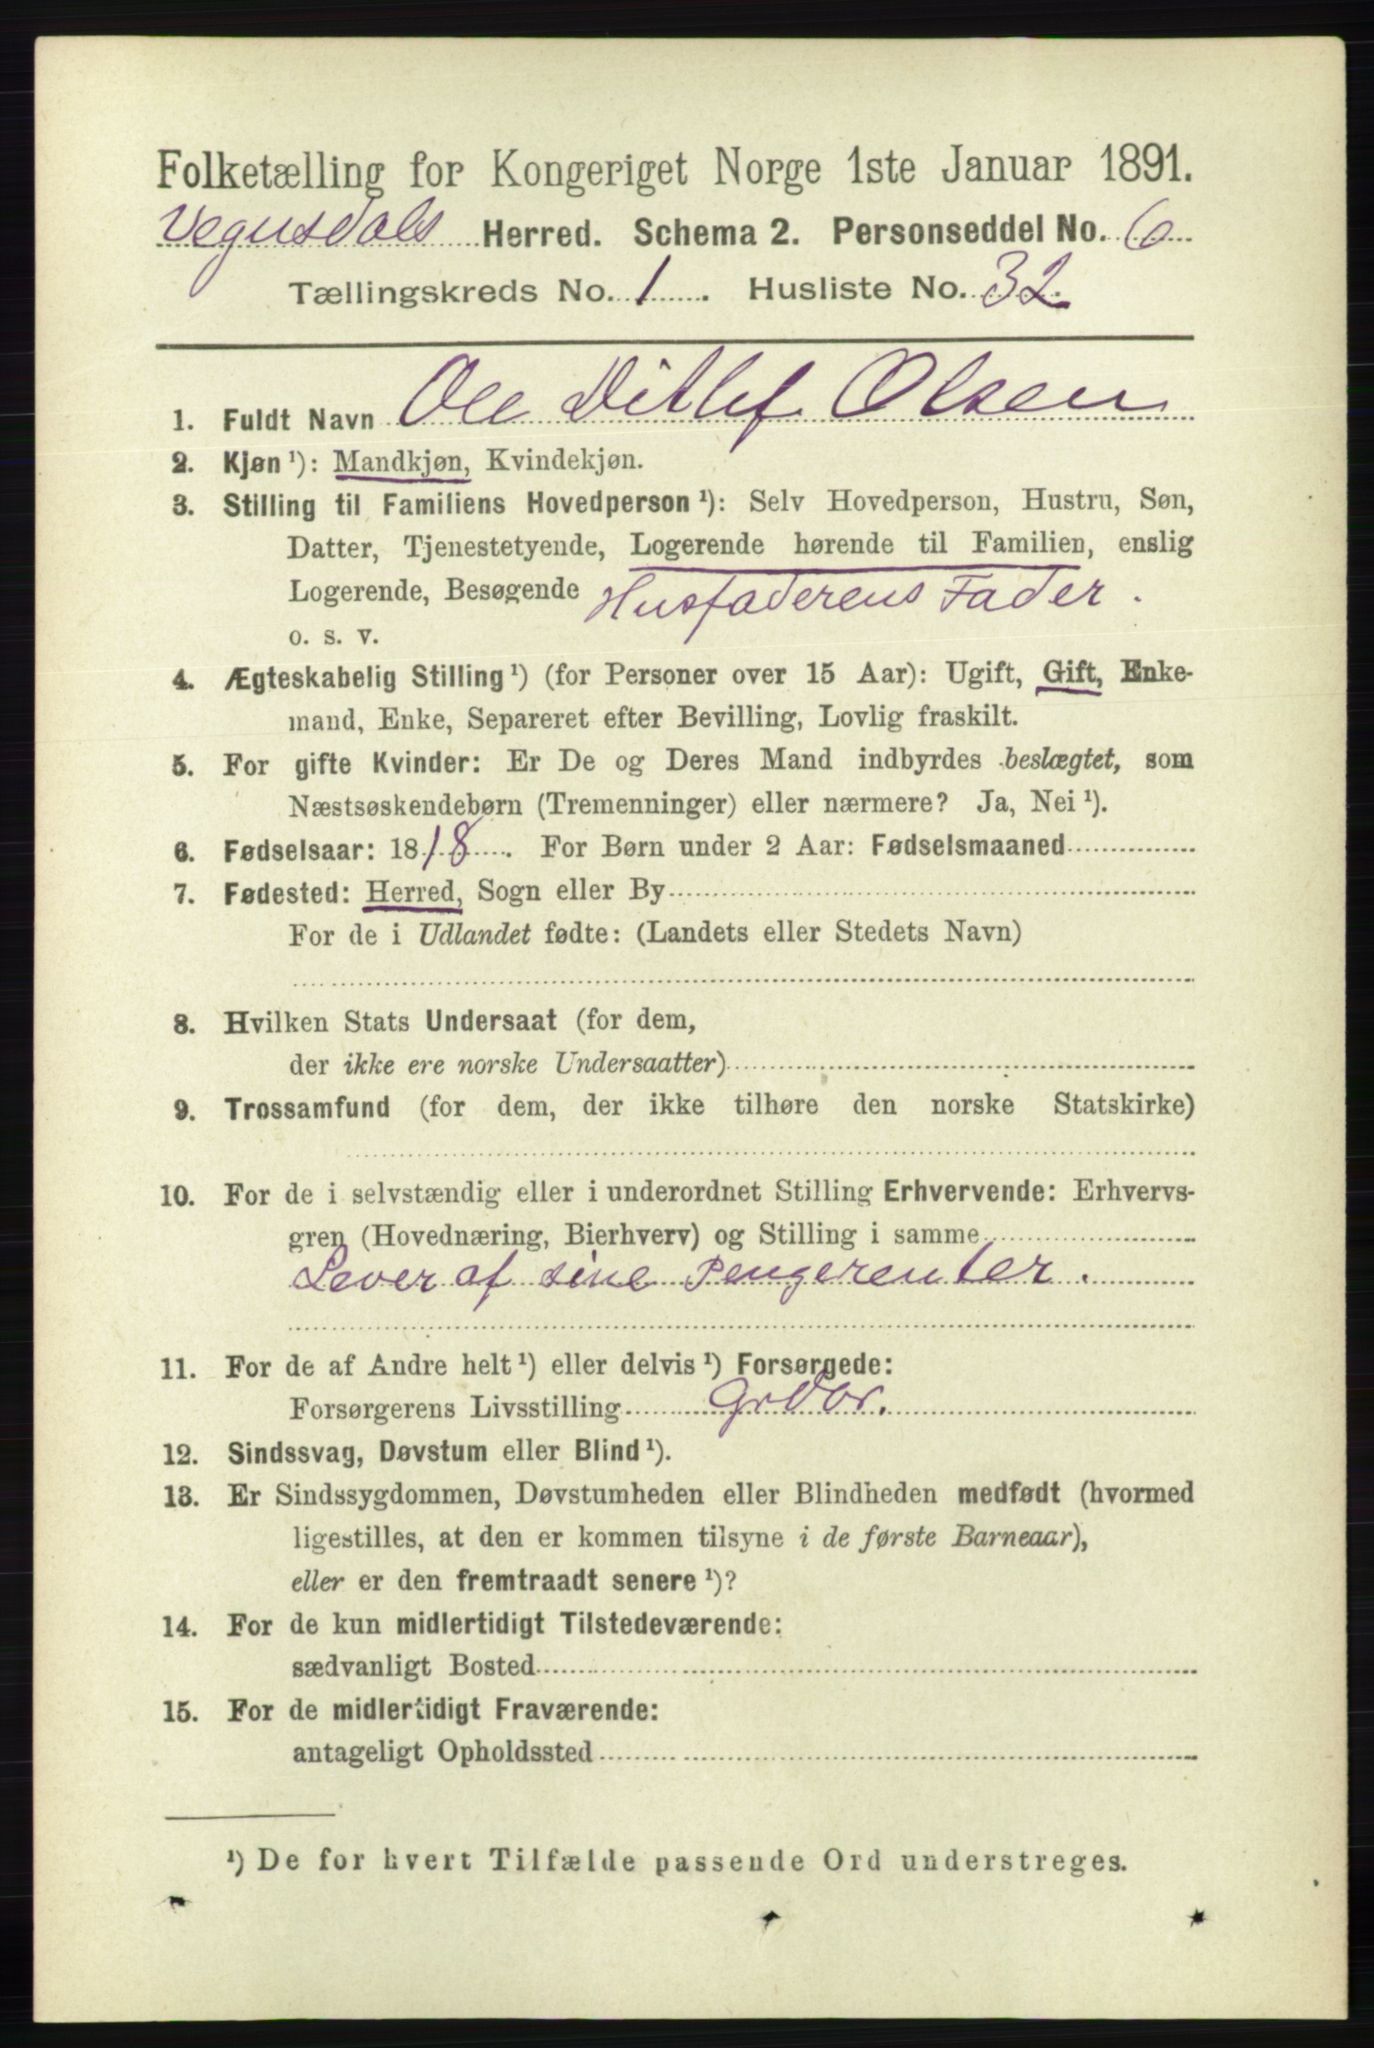 Folketælling for Kongeriget Norge 1ste Januar 1891.
Vegusdals Herred. Schema 2. Personseddel No. 6
Tællingskreds No. 1. Husliste No. 32.
1. Fuldt Navn Ole Ditlef Olsen
2. Kjøn ¹): Mandkjøn, Kvindekjøn.
3. Stilling til Familiens Hovedperson ¹): Selv Hovedperson, Hustru, Søn,
Datter, Tjenestetyende, Logerende hørende til Familien, enslig
Logerende, Besøgende Husfaderens Fader.
o. s. v.
4. Ægteskabelig Stilling ¹) (for Personer over 15 Aar): Ugift, Gift, Enke-
mand, Enke, Separeret efter Bevilling, Lovlig fraskilt.
5. For gifte Kvinder: Er De og Deres Mand indbyrdes beslægtet, som
Næstsøskendebørn (Tremenninger) eller nærmere? Ja, Nei ¹).
6. Fødselsaar: 1818. For Børn under 2 Aar: Fødselsmaaned
7. Fødested: Herred, Sogn eller By
For de i Udlandet fødte: (Landets eller Stedets Navn)
8. Hvilken Stats Undersaat (for dem,
der ikke ere norske Undersaatter)
9. Trossamfund (for dem, der ikke tilhøre den norske Statskirke)
10. For de i selvstændig eller i underordnet Stilling Erhvervende: Erhvervs-
gren (Hovednæring, Bierhverv) og Stilling i samme
Lever af sine Pengerenter.
11. For de af Andre helt ¹) eller delvis ¹) Forsørgede:
Forsørgerens Livsstilling
12. Sindssvag, Døvstum eller Blind ¹).
13. Er Sindssygdommen, Døvstumheden eller Blindheden medfødt (hvormed
ligestilles, at den er kommen tilsyne i de første Barneaar),
eller er den fremtraadt senere ¹)?
14. For de kun midlertidigt Tilstedeværende:
sædvanligt Bosted
15. For de midlertidigt Fraværende:
antageligt Opholdssted
¹) De for hvert Tilfælde passende Ord understreges.